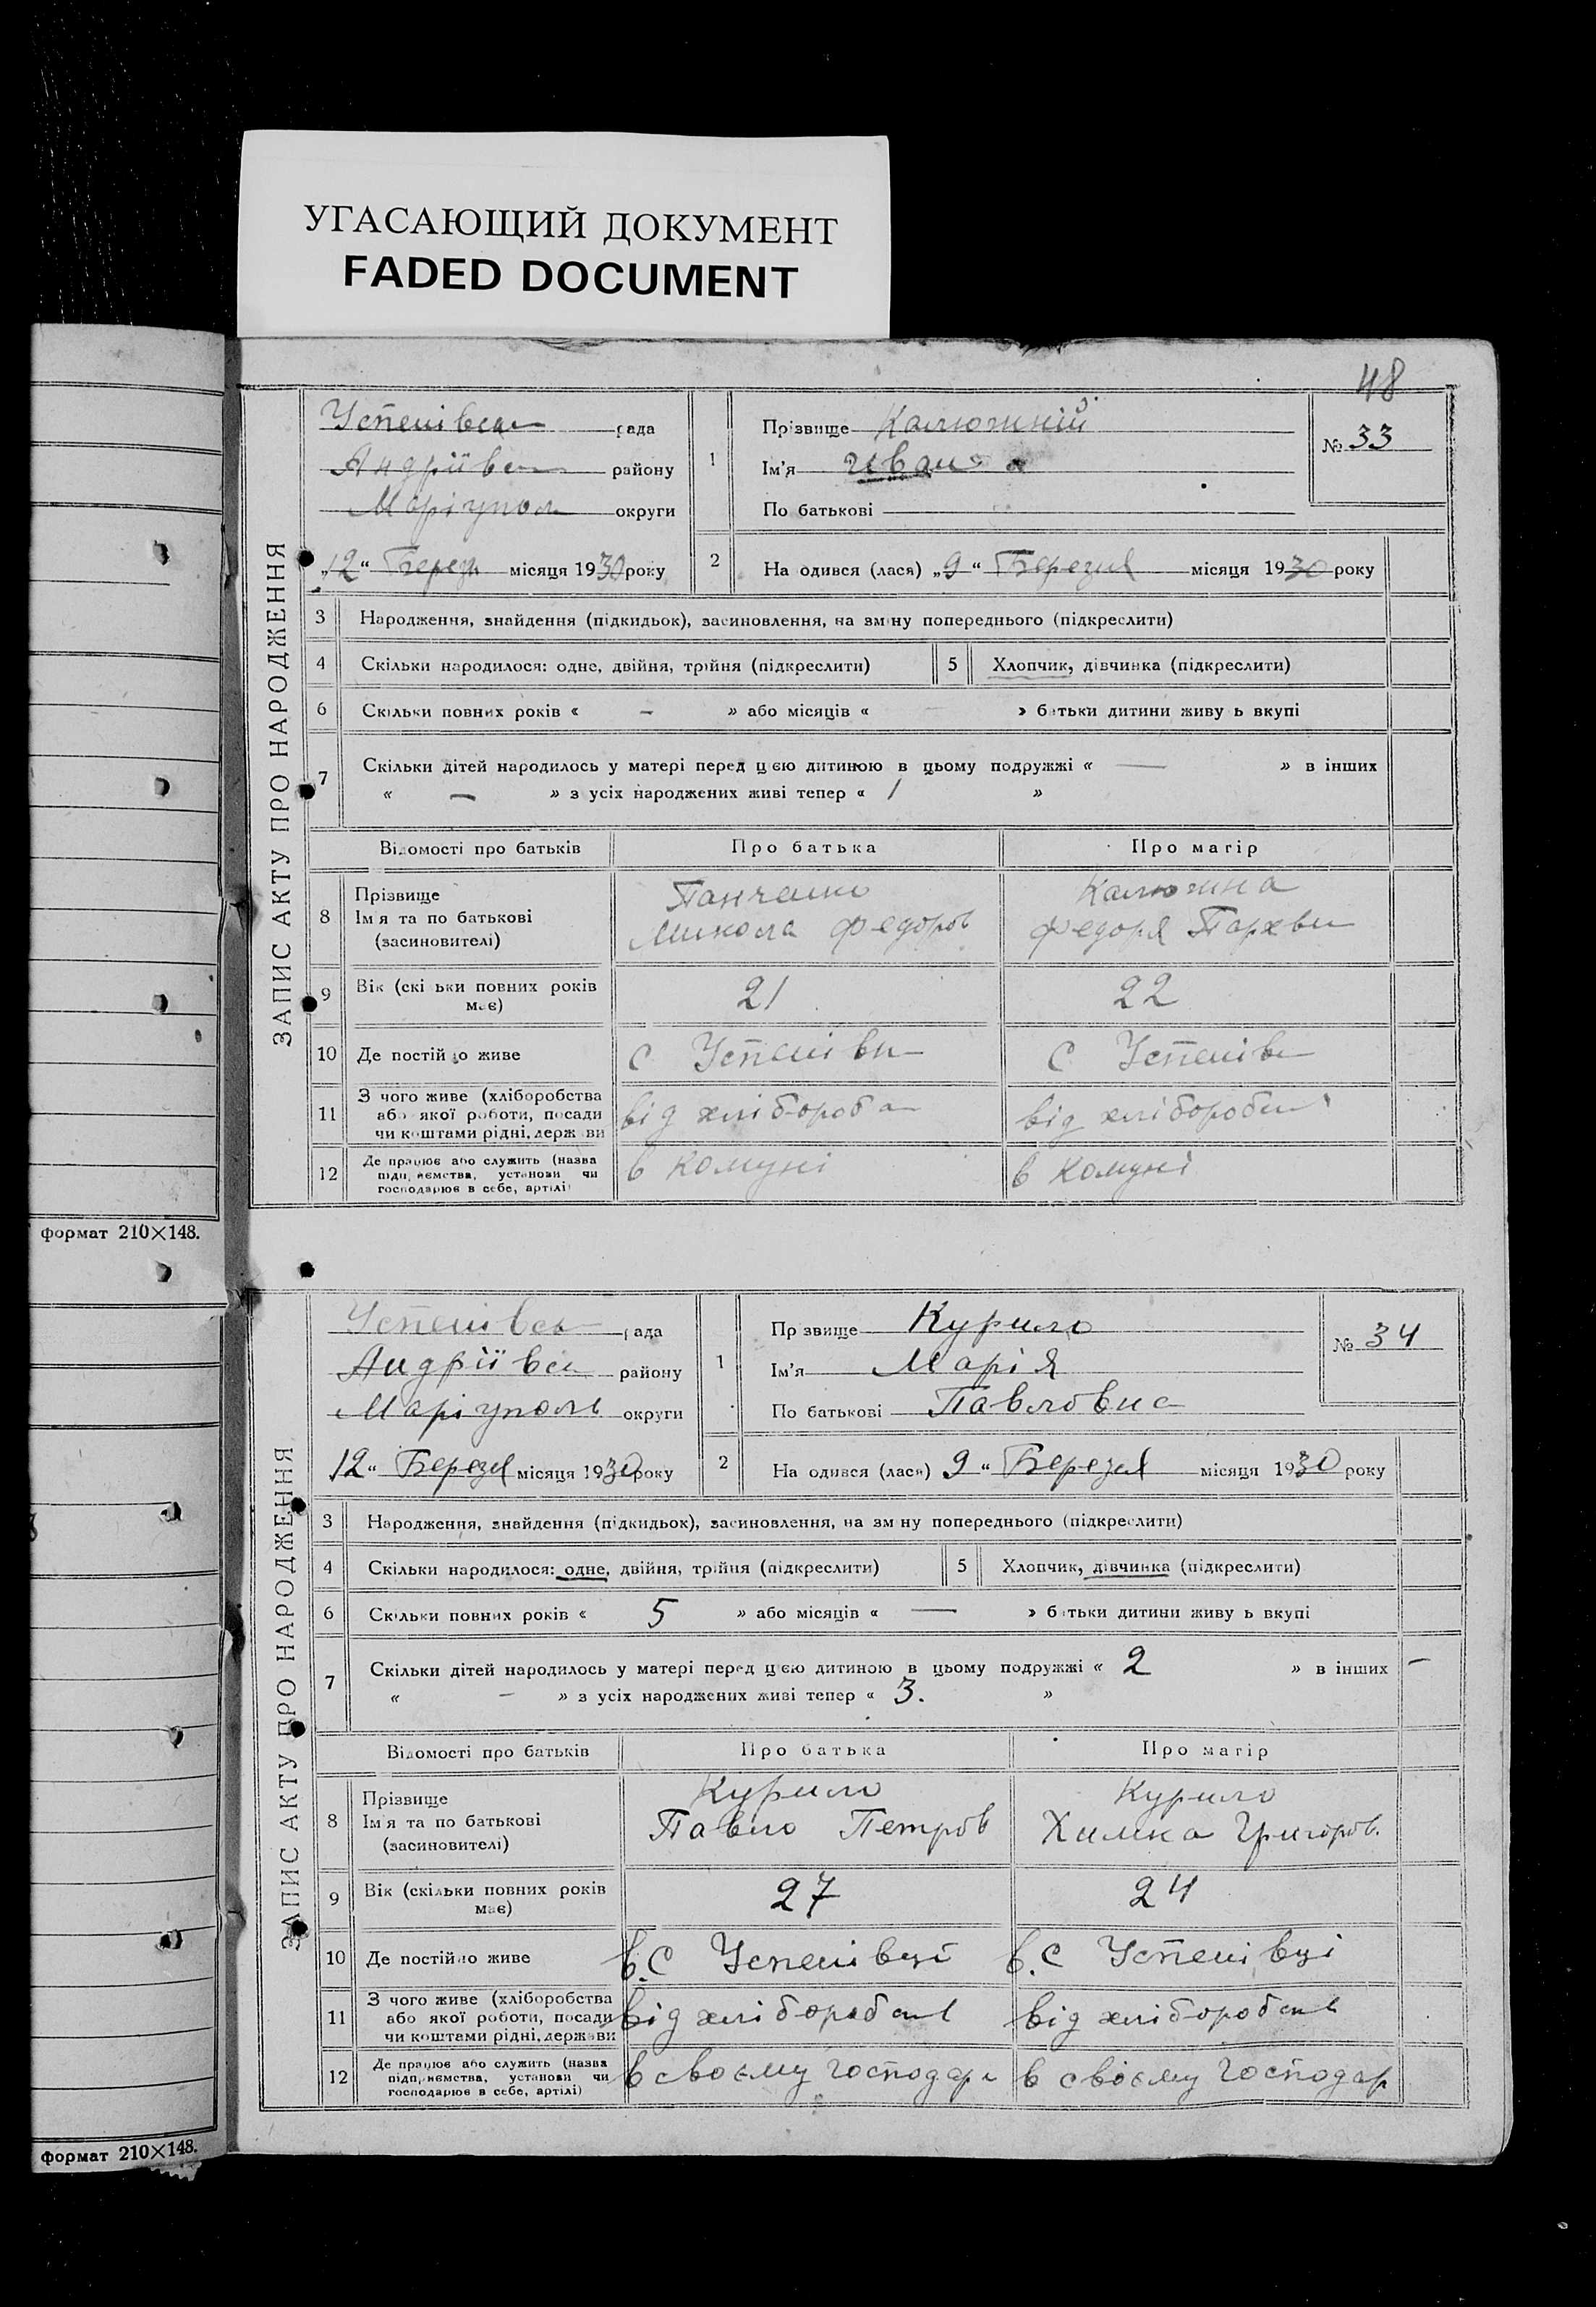 УГАСАЮЩИЙ ДОКУМЕНТ
FADED DOCUMENT
48
ЗАПИС АКТУ ПРО НАРОДЖЕННЯ
Успенівська рада
Андріївсь району
Маріуполь округи
„12“ Березн місяця 1930 року
1 Прізвище Калюжній
Ім'я Иван
По батькові
№ 33
2 На одився (лася) „9“ Березня місяця 1930 року
3 Народження, знайдення (підкидьок), засиновлення, на зміну попереднього (підкреслити)
4 Скільки народилося: одне, двійня, трійня (підкреслити) 5 Хлопчик, дівчинка (підкреслити)
6 Скільки повних років « — » або місяців « » батьки дитини живу ь вкупі
7 Скільки дітей народилось у матері перед цією дитиною в цьому подружжі « — » в інших
« — » з усіх народжених живі тепер « 1 »
Відомості про батьків Про батька Про матір
8 Прізвище
Ім'я та по батькові
(засиновителі)
Панченко
Микола Федоров
Калюжна
Федоря
9 Вік (скі ьки повних років
має)
21 22
10 Де постійно живе с Успенівк с Успенів
11 З чого живе (хліборобства
або якої роботи, посади
чи коштами рідні, держ ви
від хлібороб від хлібороб
12 Де працює або служить (назва
підприємства, установи чи
господарює в себе, артілі)
в комуні в комуні
формат 210×148.
ЗАПИС АКТУ ПРО НАРОДЖЕННЯ
Успенівсь рада
Андріївсь району
Маріуполь округи
12“ Березня місяця 1930 року
1 Пр звище Курило
Ім'я Марія
По батькові Павловна
№ 34
2 На одився (лася) 9“ Березня місяця 1930 року
3 Народження, знайдення (підкидьок), засиновлення, на зміну попереднього (підкреслити)
4 Скільки народилося: одне, двійня, трійня (підкреслити) 5 Хлопчик, дівчинка (підкреслити)
6 Скільки повних років « 5 » або місяців « — » батьки дитини живу ь вкупі
7 Скільки дітей народилось у матері перед цією дитиною в цьому подружжі « 2 » в інших —
« — » з усіх народжених живі тепер « 3. »
Відомості про батьків Про батька Про матір
8 Прізвище
Ім'я та по батькові
(засиновителі)
Курило
Павло Петров
Курило
Химка Григоров.
9 Вік (скільки повних років
має)
27 24
10 Де постійно живе в.с Успенівці в.с Успенівці
11 З чого живе (хліборобства
або якої роботи, посади
чи коштами рідні, держави
від хліборобств від хліборобств
12 Де працює або служить (назва
підприємства, установи чи
господарює в себе, артілі)
в своєму господар в своєму господар
формат 210×148.